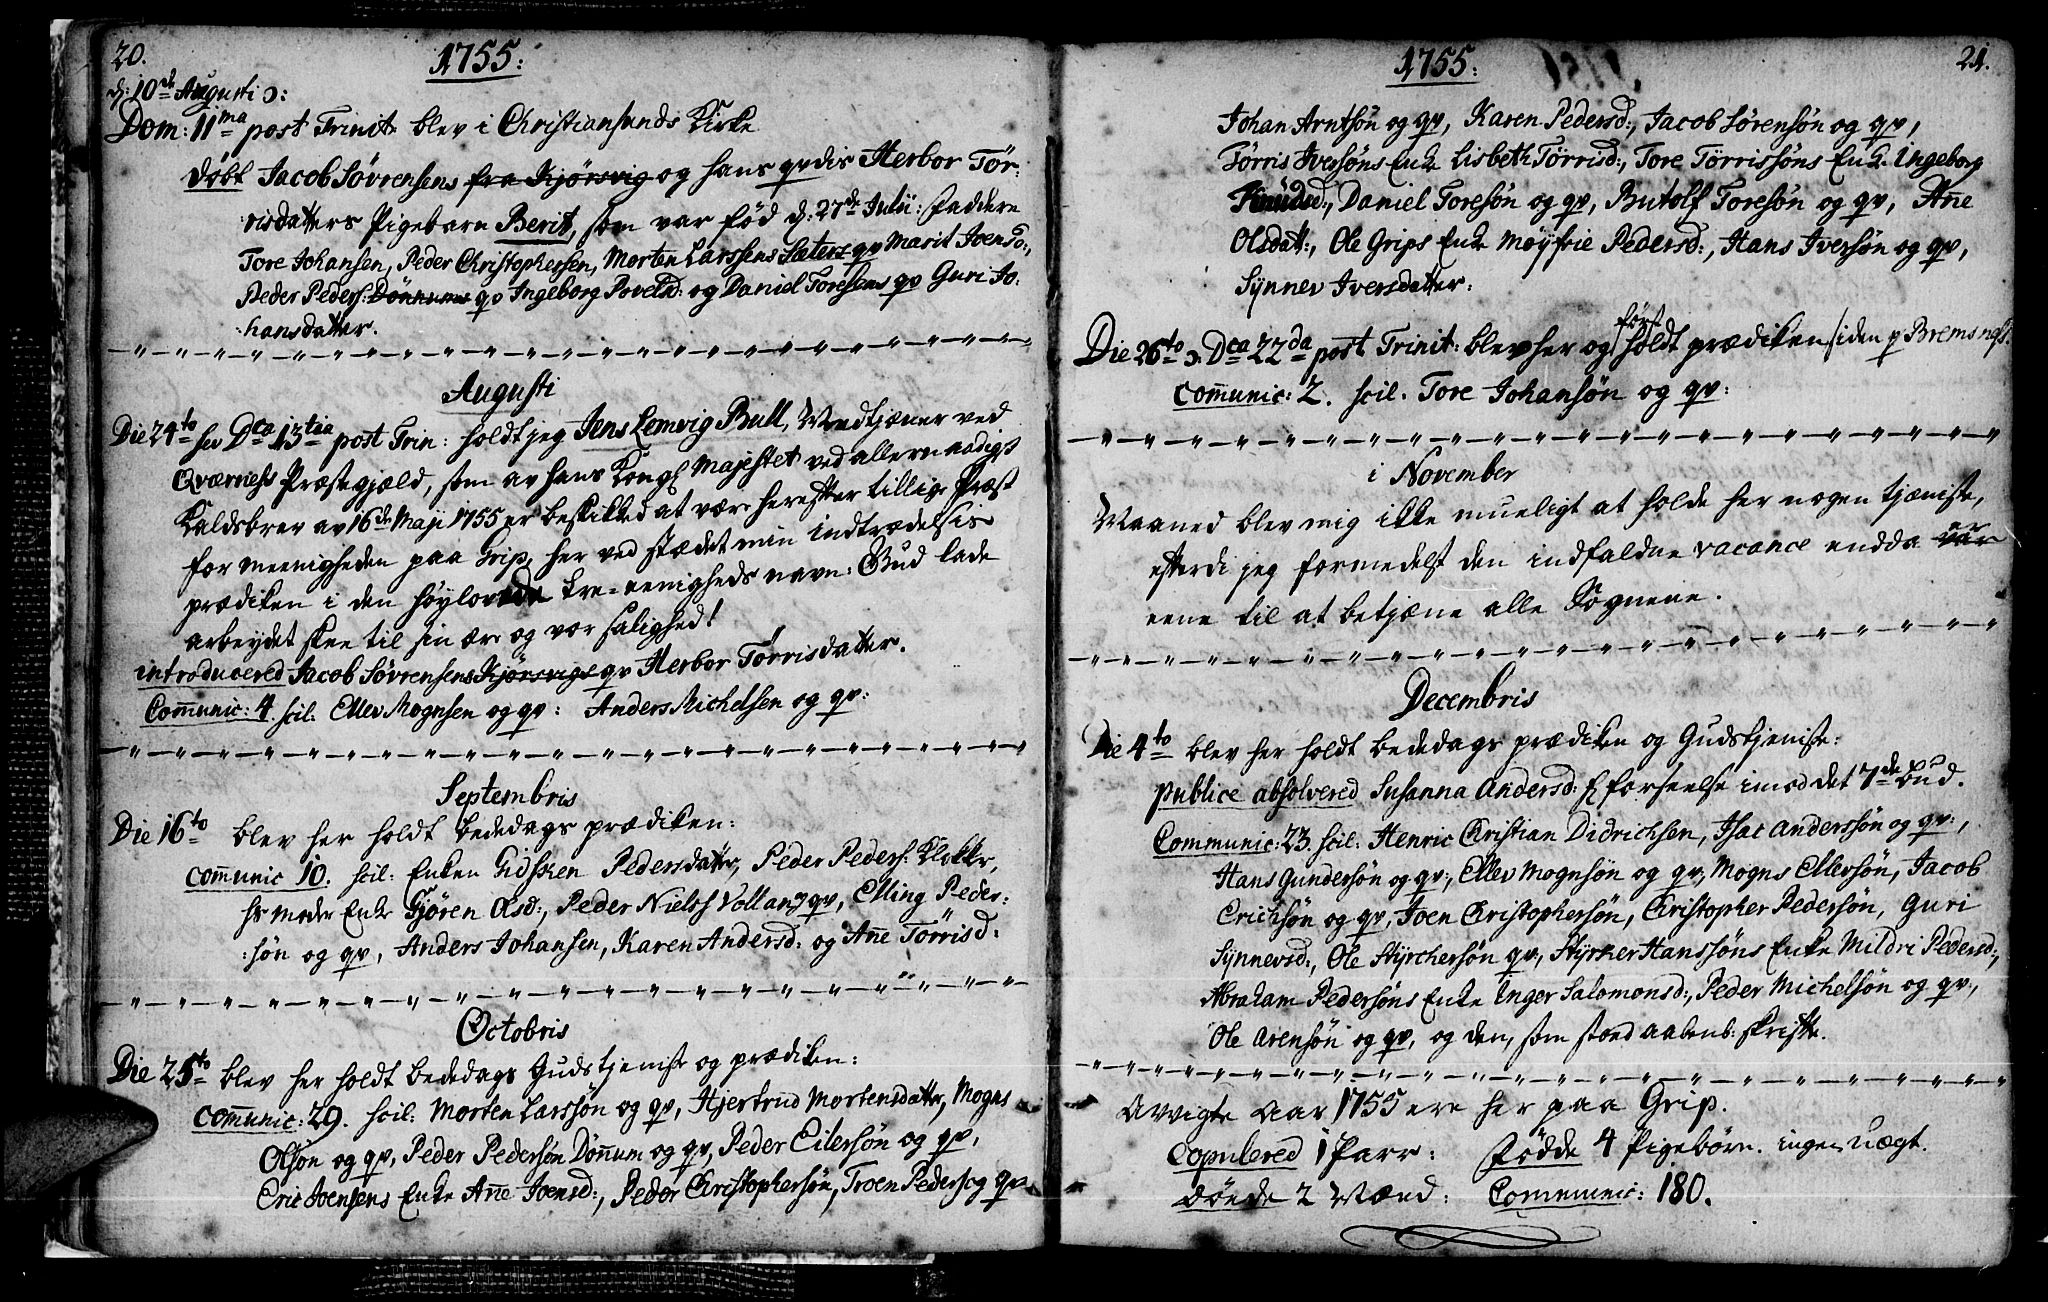 20.
1755:
d: 10de Augusti ɔ:
Dom: 11ma post Trinit blev i Christiansunds Kirke
døbt Jacob Søvrensens fra Kjørsvig og hans qvdis Herbor Tør-
risdatters Pigebarn Berit, som var fød d: 27de Julii: Faddere
Tore Johansen, Peder Christophersen, Morten Larssens Sæters qv Marit Joensd:,
Peder Peders: Dønnums qv Ingeborg Povelsd: og Daniel Toresens qv Guri Jo-
hansdatter.
Augusti
Die 24to sev Dca 13tia post Trin: holdt jeg Jens Lemvig Bull, Medtjæner ved
Qværness Præstegjæld, som av hans Kongl Majestet ved allernaadigst
Kaldsbrev av 16de Maji 1755 er beskikked at være herefter tillige Præst
for meenigheden paa Grip, her ved stædet min indtrædelsis
prædiken i den høylovede tre-eenigheds navn: Gud lade
arbeydet skee til sin ære og vor salighed!
introducered Jacob Søvrensens Kjørsvigs qv Herbor Tørrisdatter.
Communic: 4. scil: Ellev Mognsen og qv: Anders Michelsen og qv:
Septembris
Die 16to blev her holdt bededags prædiken:
Communic 10. scil: Enken Gidsken Pedersdatter, Peder Peders: Klokker,
hs moder Enke Gjøren Olsd:, Peder Niels Vollang qv, Elling Peder-
søn og qv, Anders Johansen, Karen Andersd: og Ane Tørrisd:
Octobris
Die 25to blev her holdt bededags Gudstjeniste og prædiken:
Communic: 29. scil: Morten Larssøn og qv, Hjertrud Mortensdatter, Mogns
Olson og qv, Peder Pedersøn Dønnum og qv, Peder Eilersøn og qv,
Eric Joensens Enke Ane Joensd:, Peder Christophersøn, Troen Peders og qv
1755:
21.
Johan Arntsøn og qv, Karen Pedersd:, Jacob Sørensøn og qv,
Tørris Iversøns Enke Lisbeth Tørrisd:, Tore Tørrissøns Enke Ingeborg
Knudsd:, Daniel Toresøn og qv, Butolf Toresøn og qv, Ane
Olsdatt:, Ole Grips Enke Møyfrie Pedersd:, Hans Iversøn og qv,
Synnev Iversdatter:
Die 26to ɔ: Dca 22da post Trinit: blev her og først holdt prædiken siden p Bremsnes.
Communic: 2. scil. Tore Johansøn og qv:
i November
Maaned blev mig ikke mueligt at holde her nogen tjæniste,
efterdi jeg formedelst den indfaldne vacance endda var er
eene til at betjæne alle Sognene.
Decembris
Die 4to blev her holdt bededags prædiken og Gudstjeniste:
publice absolvered Susanna Andersd: f forseelse imod det 7de bud.
Communic: 23. scil: Henric Christian Didrichsen, Isac Anderssøn og qv:,
Hans Gundersøn og qv:, Ellev Mognsøn og qv:, Mogns Ellersøn, Jacob
Erichsøn og qv, Joen Christophersøn, Christopher Pedersøn, Guri
Synnevsd:, Ole Styrchersøn qv:, Styrker Hanssøns Enke Mildri Pedersd:,
Abraham Pedersøns Enke Inger Salomonsd:, Peder Michelsøn og qv,
Ole Arensøn og qv, og den, som stoed aabenb: skrifte.
Udvigte Aar 1755 ere her paa Grip.
Copulered 1 Parr: Fødde 4 Pigebørn. ingen uægt.
Dønde 2 Mænd: Communic: 180.